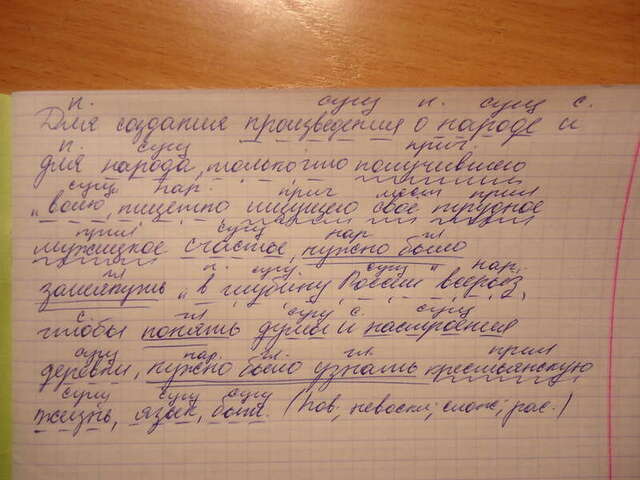 п. сущ п. сущ с.
Для создания произведения о народе и
п. сущ прич.
для народа, только что получившего
сущ нар. прич мест прил
"волю, тщетно ищущего своё трудное
прил сущ нар гл
мужицкое счастье, нужно было
гл п. сущ. сущ нар.
заглянуть "в глубину России" всерьёз,
с гл сущ с. сущ
чтобы понять думы и настроения
сущ нар. гл. гл прил
деревни, нужно было узнать крестьянскую
сущ сущ сущ
жизнь, язык, быт. (пов., невоскл; слож; рас.)